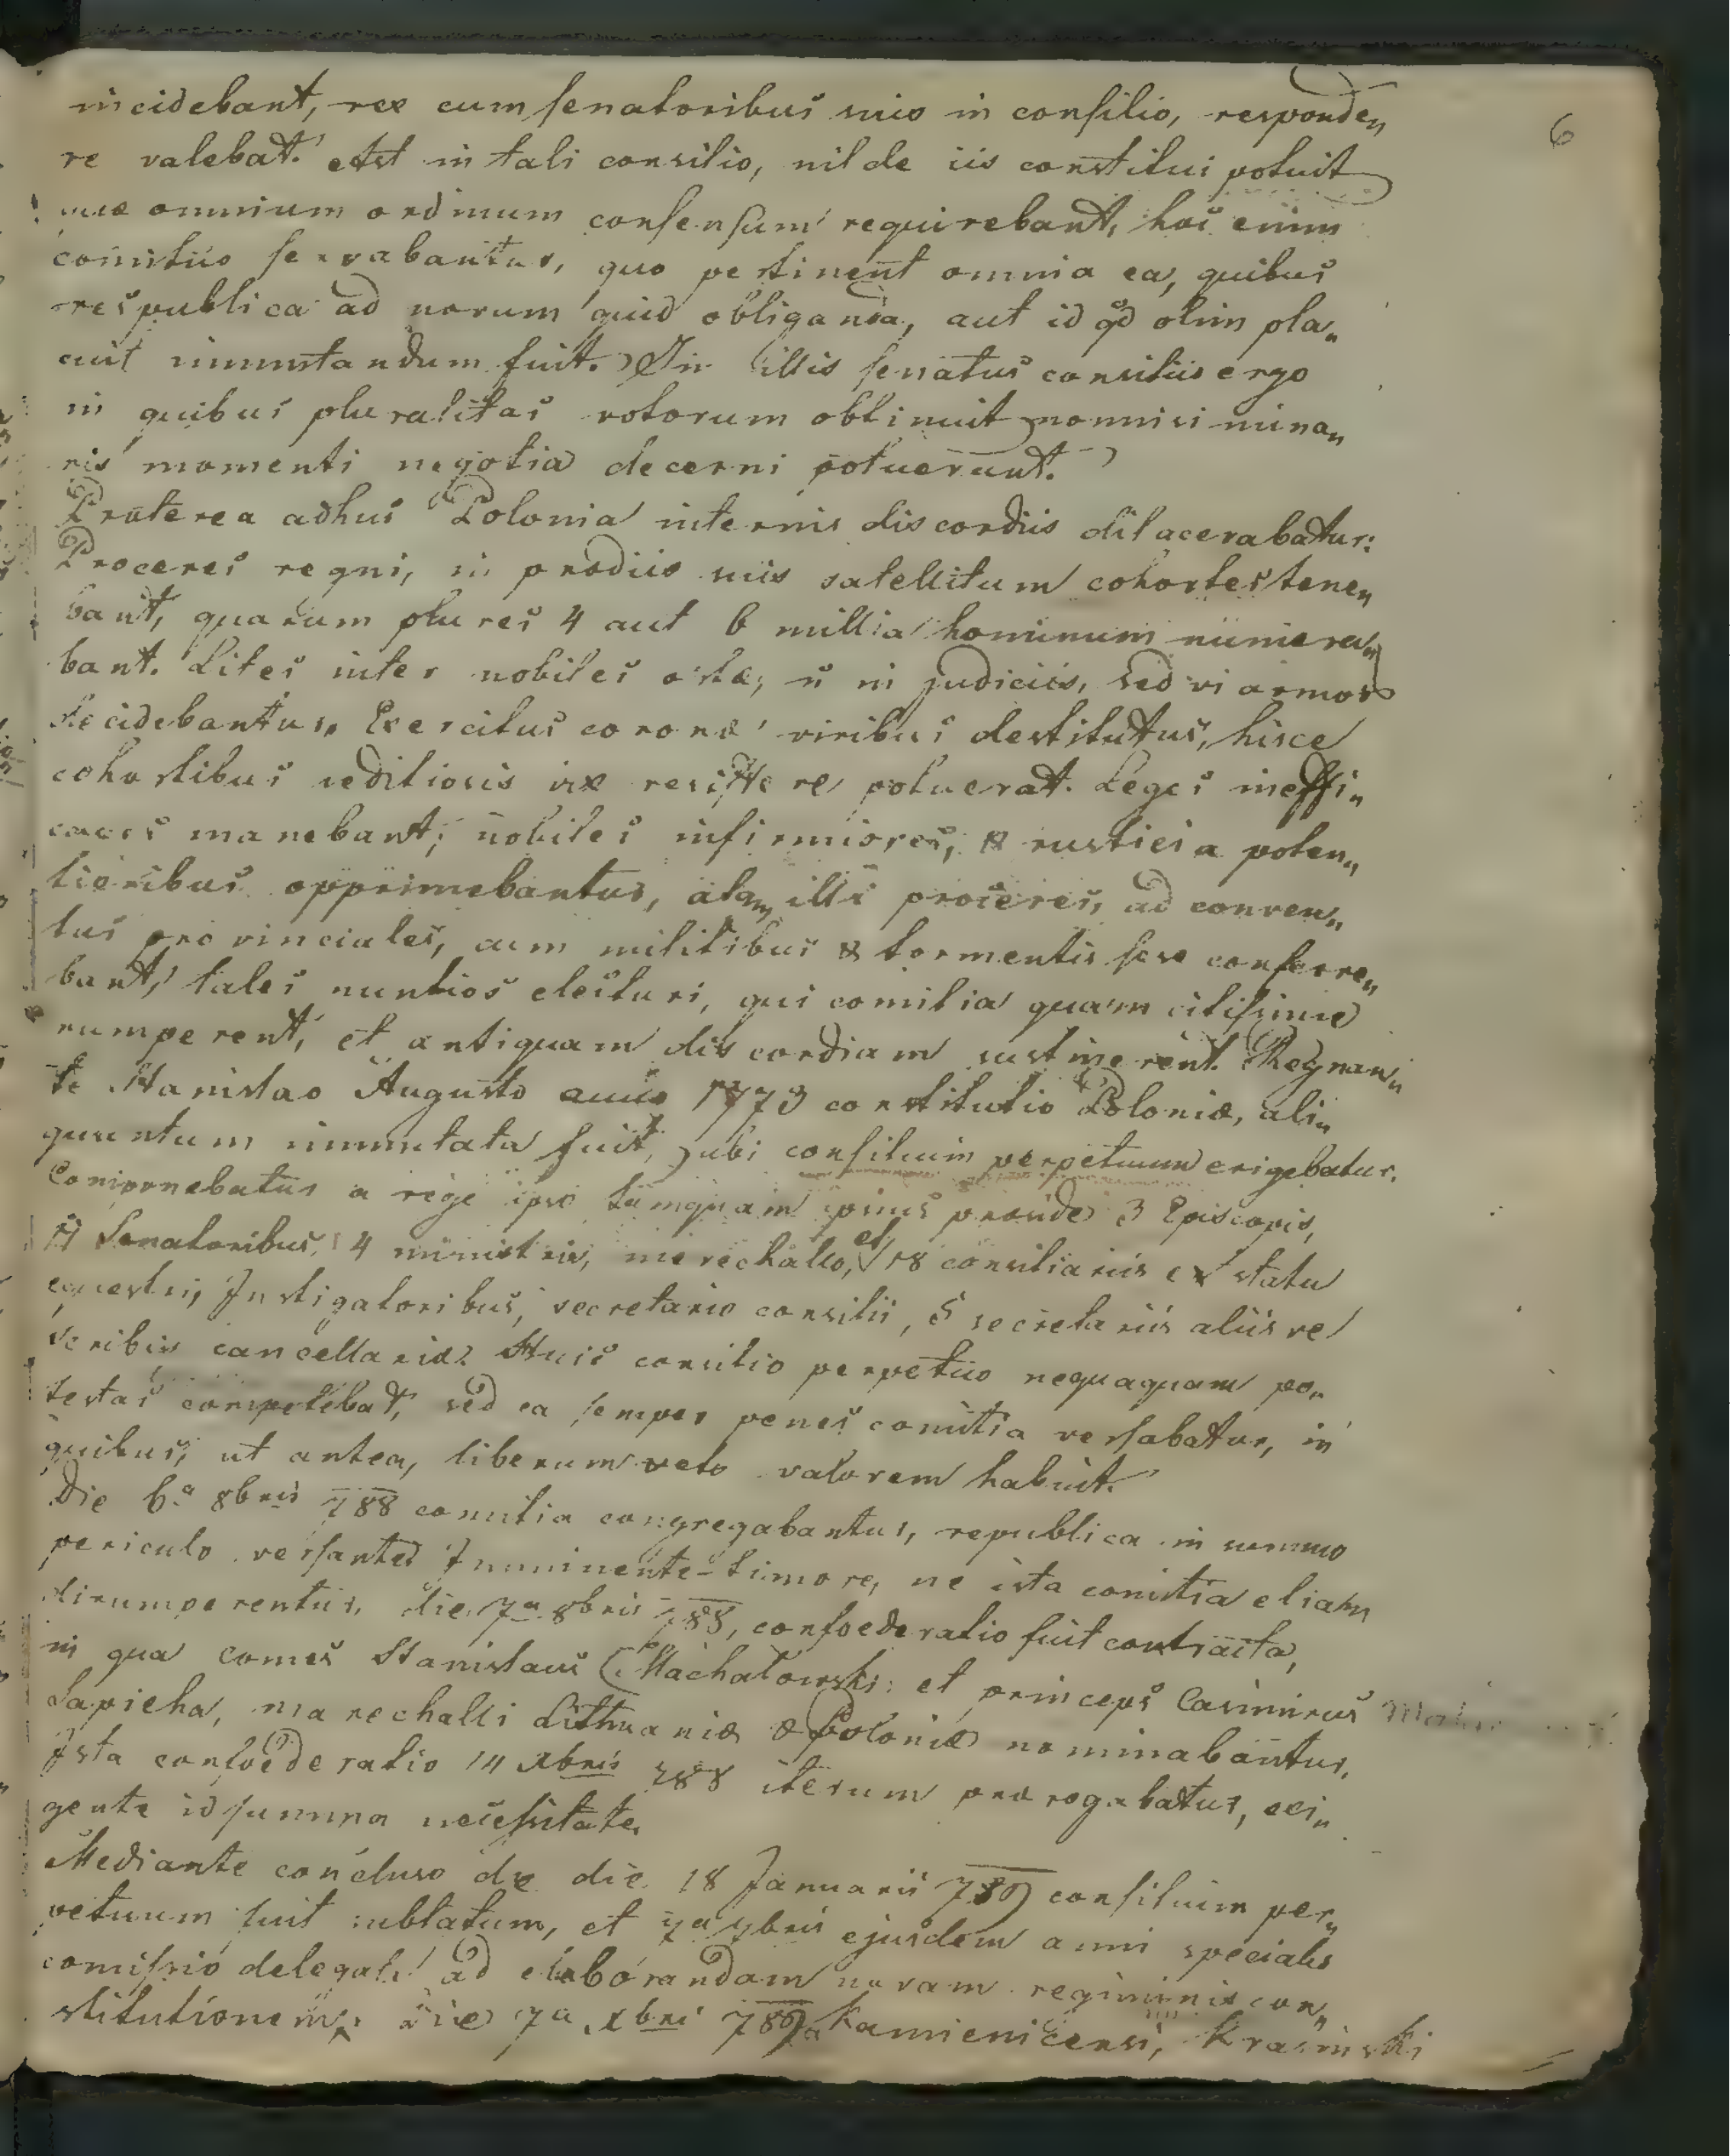 incidebant, rex cum senatoribus suis in consilio, responde„
re valebat. Ast in tali consilio, nil de iis constitui potuit
quæ omnium ordinum consensum requirebant, hoc enim
comitiis servabantur, quo pertinent omnia ea, quibus
respublica ad novum quid obliganda, aut id qd olim pla„
cuit immutandum fuit. In illis senatus consiliis ergo
in quibus pluralitas votorum obtinuit nonnisi mino„
ris momenti negotia decerni potuerunt.
Præterea adhuc Polonia internis discordiis dilacerabatur:
Proceres regni, in prædiis suis satellitum cohortes tene„
bant, quarum plures 4 aut 6 millia hominum numera„
bant. Lites inter nobiles ortæ, ñ in judiciis, sed vi armor
decidebantur. Exercitus coronæ viribus destitutus, hisce
cohortibus seditiosis vix resistere potuerat. Leges ineffi„
caces manebant; nobiles infirmiores, & rustici a poten„
tioribus opprimebantur, atq, illi proceres, ad conven„
tus provinciales, cum militibus & tormentis sese conferre„
bant, tales nuntios electuri, qui comitia quam citissime
rumperent, et antiquam discordiam sustinerent. Regnan„
te Stanislao Augusto anno 1773 constitutio Poloniæ, ali„
quantum immutata fuit, ubi consilium perpetuum erigebatur.
Componebatur a rege ipso tamquam ipsius præside 3 Episcopis,
11 Senatoribus, 4 ministris, marechallo, et 18 consiliariis ex statu
equestri, Instigatoribus, secretario consilii, 5 secretariis aliis ve
scribis cancellariæ. Huic consilio perpetuo nequaquam po„
testas competebat, sed ea semper penes comitia versabatur, in
quibus, ut antea, liberum veto valorem habuit.
Die 6a 8bris 788 comitia congregabantur, republica in summo
periculo versante. Imminente timore, ne ista comitia etiam
dirumperentur, die 7a 8bris 788, confoederatio fuit contracta,
in qua comes Stanislaus Machałowski et princeps Casimirus
Sapieha, marechalli Lithuaniæ & Poloniæ nominabantur.
Ista confoederatio 14 Xbris 788 iterum prorogabatur, exi„
gente id summa necessitate.
Mediante concluso de die 18 Januarii 789 consilium per„
petuum fuit sublatum, et 7a 7bris ejusdem anni specialis
comissio delegata ad elaborandam novam regiminis con„
stitutionem. Die 7a Xbris 789 a Kamienicensi, Krasinski